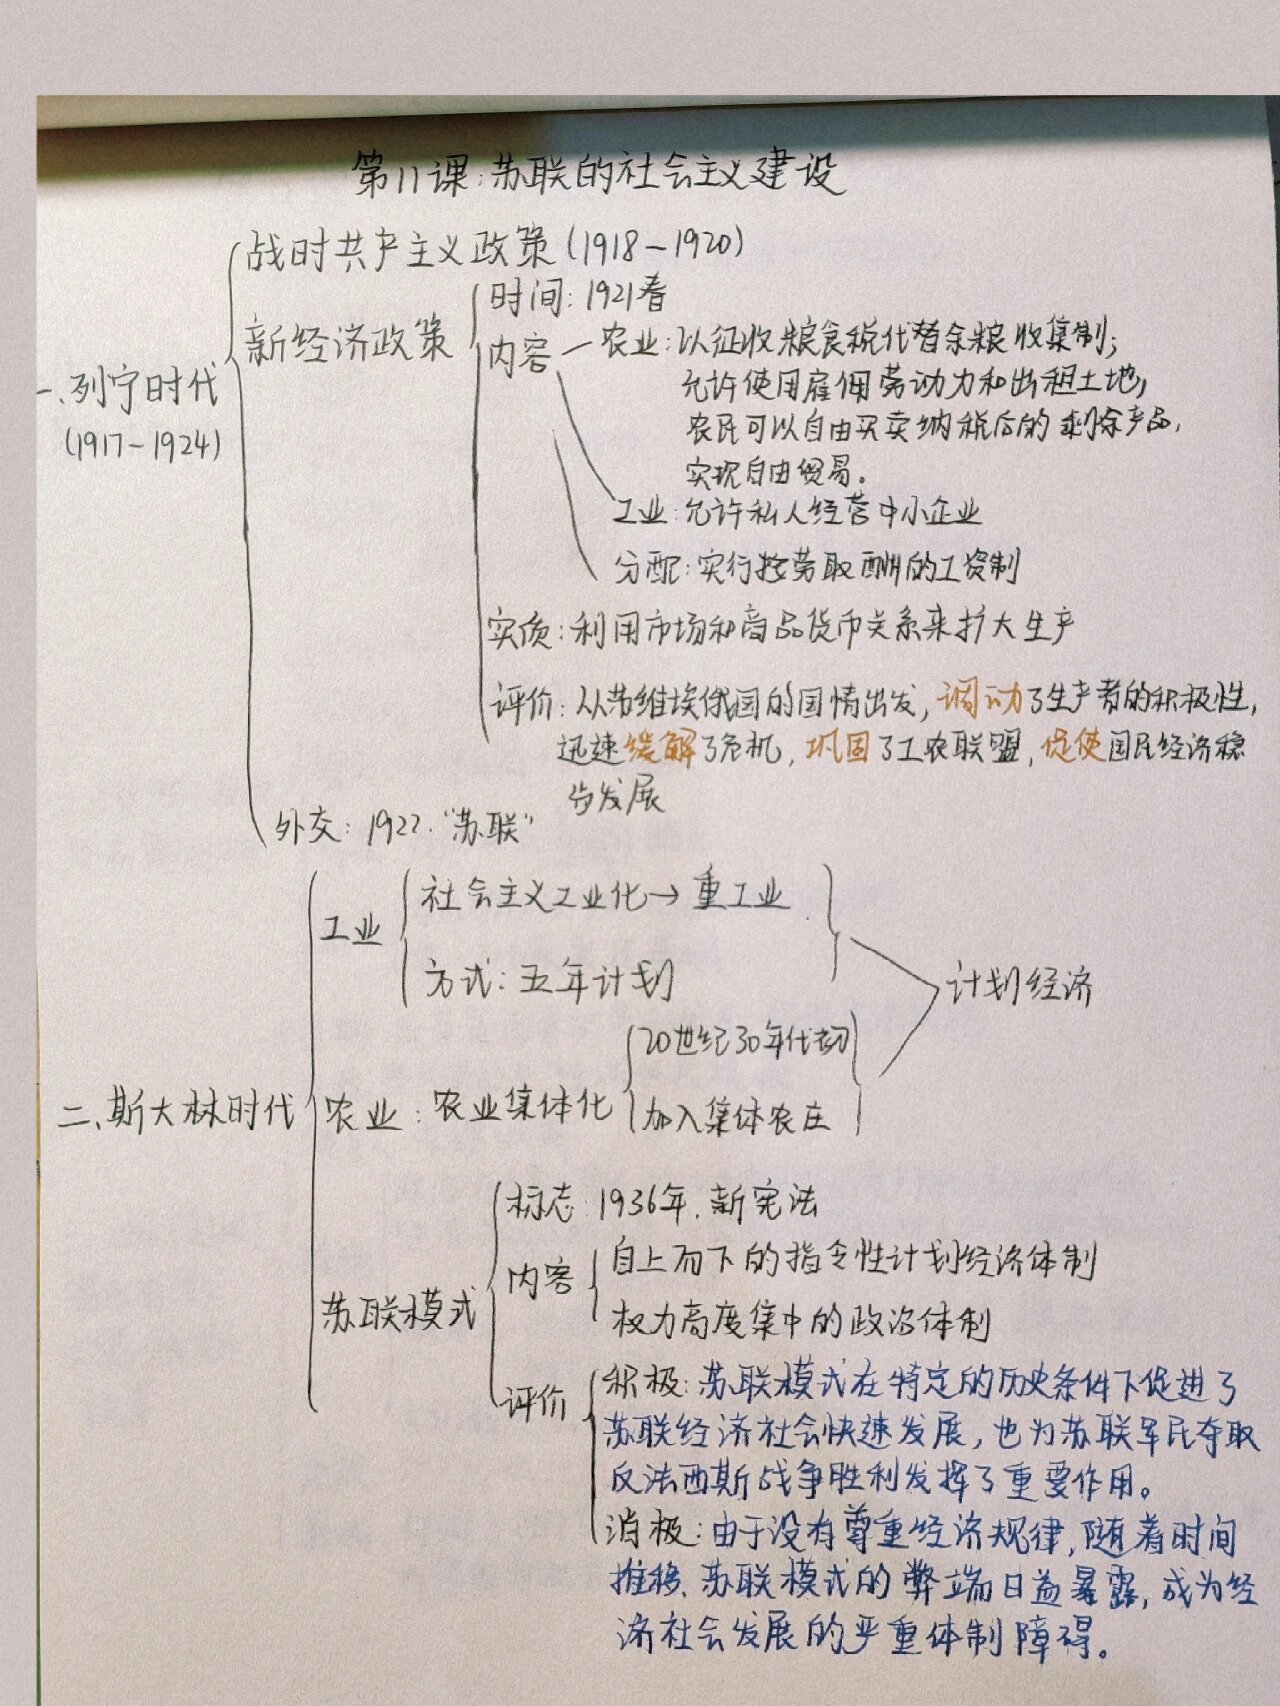 第11课:苏联的社会主义建设
战时共产主义政策(1918-1920)
时间:1921春
新经济政策
内容 农业:以征收粮食税代替余粮收集制;
一、列宁时代
允许使用雇佣劳动力和出租土地,
(1917-1924)
农民可以自由买卖纳税后的剩余产品,
实现自由贸易。
工业:允许私人经营中小企业
分配:实行按劳取酬的工资制
实质:利用市场和商品货币关系来扩大生产
评价:从苏维埃俄国的国情出发,调动了生产者的积极性,
迅速缓解了危机,巩固了工农联盟,促使国民经济稳
步发展
外交:1922."苏联"
社会主义工业化→重工业
工业
方式:五年计划
计划经济
20世纪30年代初
二、斯大林时代
农业:农业集体化
加入集体农庄
标志:1936年.新宪法
自上而下的指令性计划经济体制
内容
苏联模式
权力高度集中的政治体制
评价
积极:苏联模式在特定的历史条件下促进了
苏联经济社会快速发展,也为苏联军民夺取
反法西斯战争胜利发挥了重要作用。
消极:由于没有尊重经济规律,随着时间
推移、苏联模式的弊端日益暴露,成为经
济社会发展的严重体制障碍。